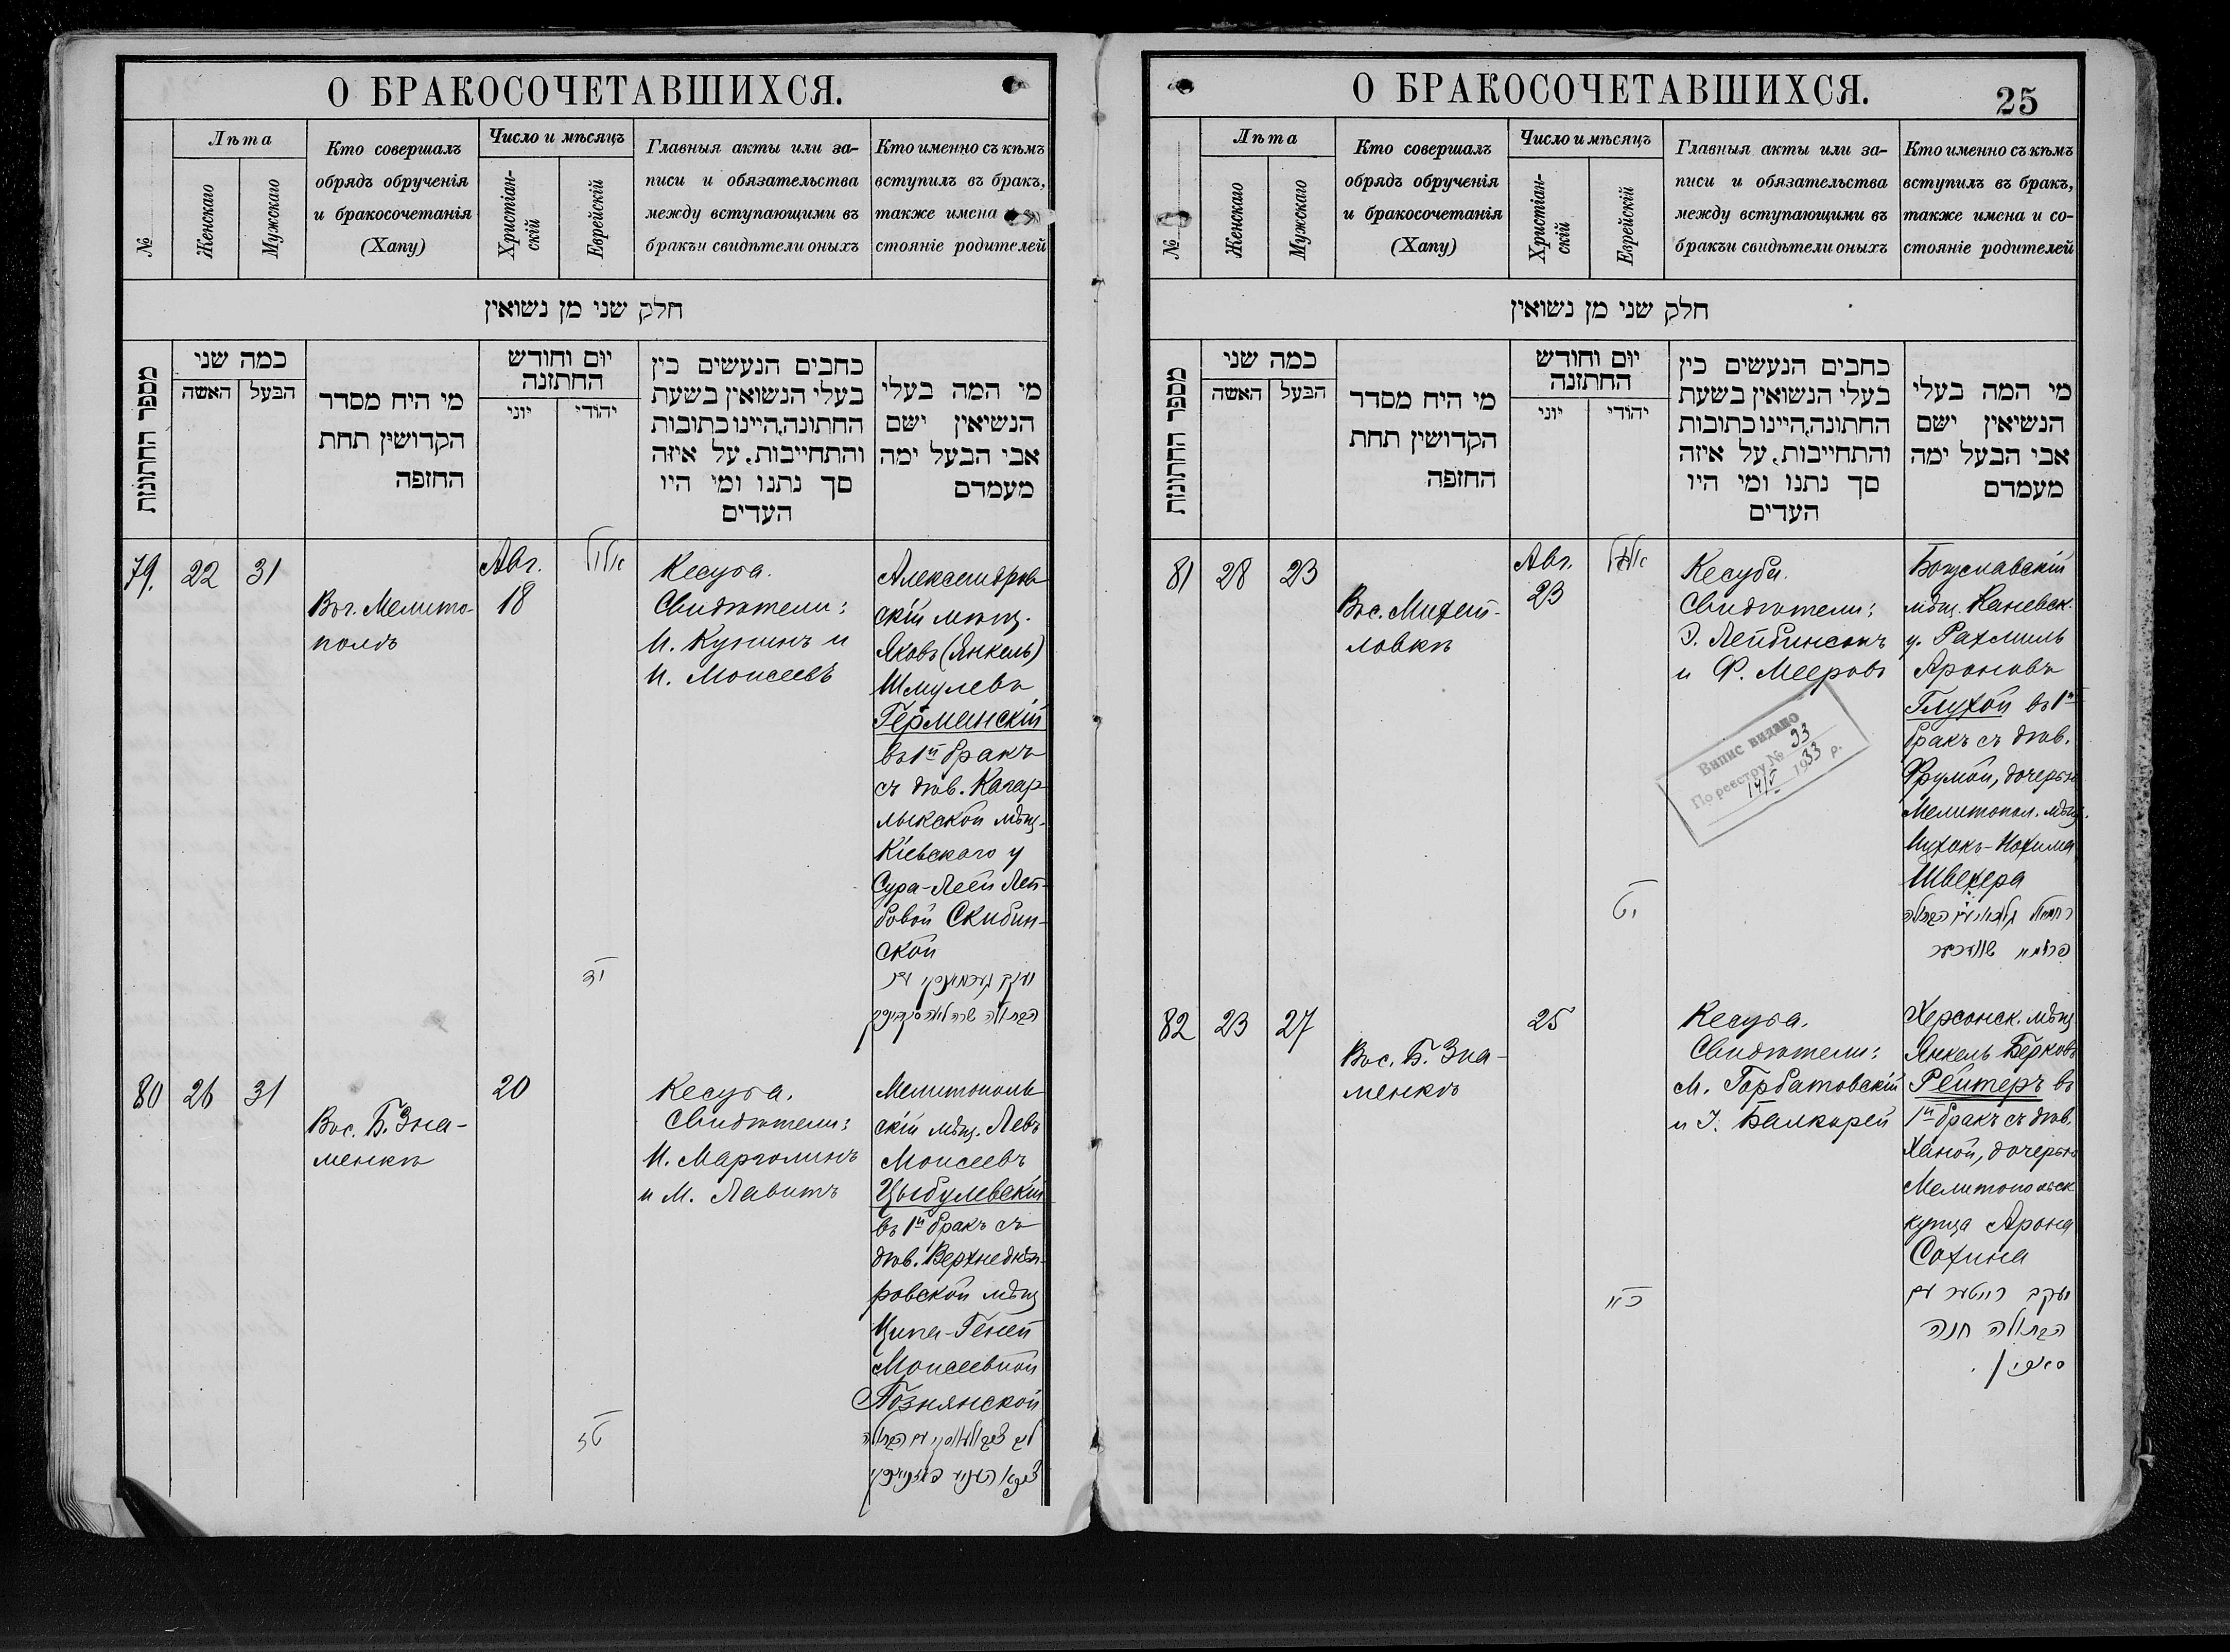 О БРАКОСОЧЕТАВШИХСЯ.
№
Лѣта
Женскаго
Мужскаго
Кто совершалъ
обрядъ обрученія
и бракосочетанія
(Хапу)
Число и мѣсяцъ
Христіан-
скій
Еврейскій
Главныя акты или за-
писи и обязательства
между вступающими въ
бракъи свидѣтели оныхъ
Кто именно съ кѣмъ
вступилъ въ бракъ,
также имена
стояніе родителей
חלק שני מן נשואין
מספר החתונות
כמה שני
האשה
הבעל
מי היח מסדר
הקדושין תחת
החזפה
יום וחודש
החתזנה
יוני
יהודי
כחבים הנעשים כין
בעלי הנשואין בשעת
החתונה,היינו כתובות
והתחייבות, על איזה
סך נתנו ומי היו
העדים
מי המה בעלי
הנשיאין ישם
אבי הבעל ימה
מעמדם
79.
22
31
Въ г. Мелито-
полѣ
Авг.
18
אלול
יד
Кесуба.
Свидѣтели:
И. Кунинъ и
И. Моисеевъ
Александров-
скій мѣщ.
Яковъ (Янкель)
Шмулевъ
Германскій
въ 1й бракъ
съ дѣв. Кагар-
лыкской мѣщ.
Кіевскаго у
Сура-Леей Лей-
бовой Скибин-
ской
80
26
31
Въ с. Б. Зна-
менкѣ
20
טז
Кесуба.
Свидѣтели:
И. Марголинъ
и М. Лавитъ
Мелитополь-
скій мѣщ. Левъ
Моисеевъ
Цыбулевскій
въ 1й бракъ съ
дѣв. Верхнеднѣп-
ровской мѣщ
Ципа-Геней
Моисеевной
Познянской
О БРАКОСОЧЕТАВШИХСЯ.
25
№
Лѣта
Женскаго
Мужскаго
Кто совершалъ
обрядъ обрученія
и бракосочетанія
(Хапу)
Число и мѣсяцъ
Христіан-
скій
Еврейскій
Главныя акты или за-
писи и обязательства
между вступающими въ
бракъи свидѣтели оныхъ
Кто именно съ кѣмъ
вступилъ въ бракъ,
также имена и со-
стояніе родителей
חלק שני מן נשואין
מספר החתונות
כמה שני
האשה
הבעל
מי היח מסדר
הקדושין תחת
החזפה
יום וחודש
החתזנה
יוני
יהודי
כחבים הנעשים כין
בעלי הנשואין בשעת
החתונה,היינו כתובות
והתחייבות, על איזה
סך נתנו ומי היו
העדים
מי המה בעלי
הנשיאין ישם
אבי הבעל ימה
מעמדם
81
28
23
Въ с. Михай-
ловкѣ
Авг.
23
אלול
יט
Кесуба.
Свидѣтели:
Э. Лейбинсонъ
и Ф. Мееровъ
Випис видано
По реестру № 93
14/V 1933 р.
Богуславскій
мѣщ. Каневск.
у. Рахмиль
Ароновъ
Глухой въ 1й
бракъ съ дѣв.
Фрумой, дочерью
Мелитопол. мѣщ.
Ицхокъ-Нохима
Швехера
82
23
27
Въ с. Б. Зна-
менкѣ
25
כא
Кесуба.
Свидѣтели:
М. Горбатовскій
и І. Балкорей
Херсонск. мѣщ
Янкель Берковъ
Рейтеръ въ
1й бракъ съ дѣв.
Ханой, дочерью
Мелитопольск
купца Арона
Сохина
יעקב רייטער עם
הבתולה חנה